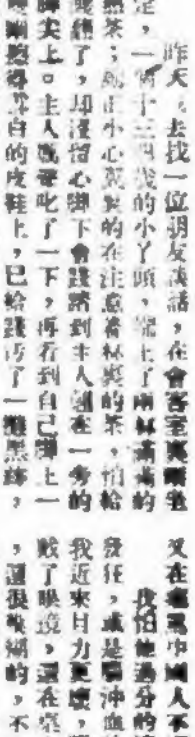 昨天,去找一位朋友談話,在會客室裏坐
,一個十三四歲的小丫頭,端上了兩杯滿滿的
茶;她正小心翼翼的在注意着杯裏的茶,怕給
了,却沒留心脚下會踐踏到主人翹在一旁的
脚尖上。主人聲叱了一下,再看到自己脚上一
得雪白的皮鞋上,已給踐汚了一黑跡,
又在中國人不
我怕他過分的
發狂,或是腦沖血
我近來目力更壞,
戴了眼鏡,還在
,還很模糊的,不